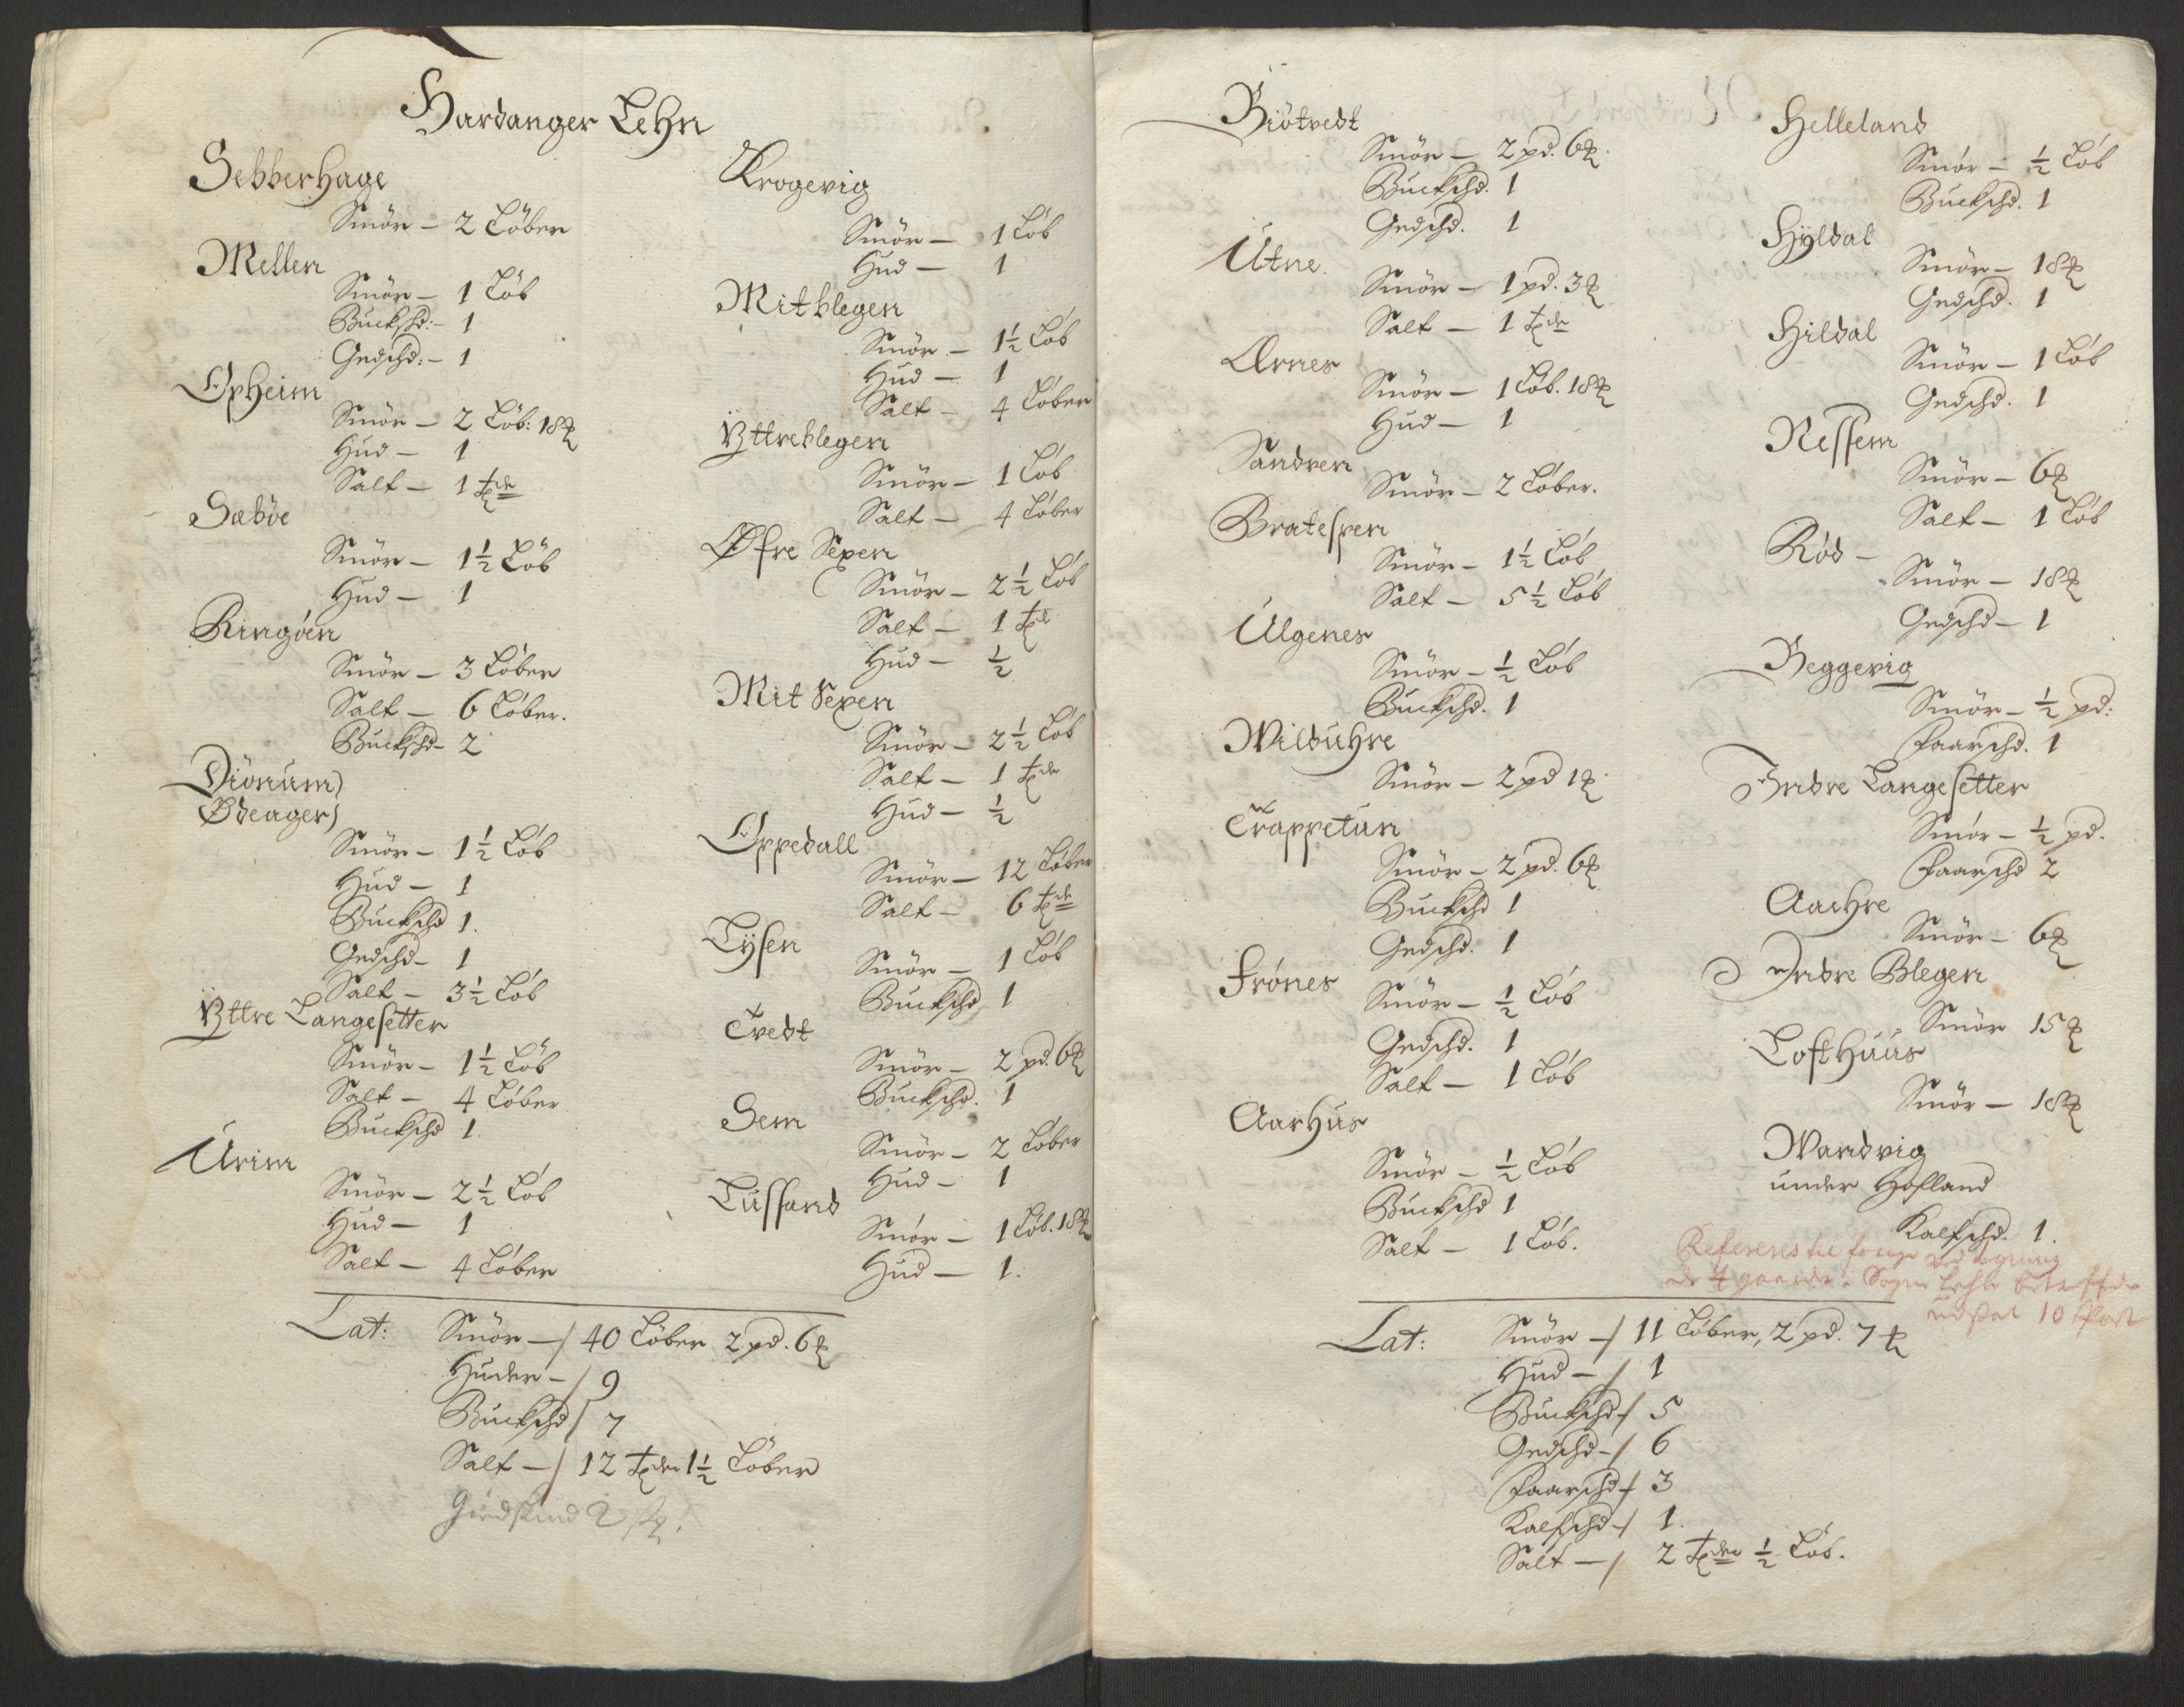 Hardanger Lehn
Sebberhage
Smör — 2 Löber
Mellen
Smör — 1 Löb
Buckschd: — 1
Gedschd: — 1
Opheim
Smör — 2 Löb: 18 ℔
Hud — 1
Salt — 1 tde
Sæböe
Smör — 1½ Löb
Hud — 1
Ringöen
Smör — 3 Löber
Salt — 6 Löber.
Buckschd — 2
Diönum)
Ødeager)
Smör — 1½ Löb
Hud — 1
Buckschd 1.
Gedschd — 1
Salt — 3½ Löb
Yttre Langesetter
Smör — 1½ Löb
Salt — 4 Löber
Buckschd 1.
Urim
Smör — 2½ Löb
Hud — 1
Salt — 4 Löber
Krogevig
Smör — 1 Löb
Hud — 1
Mitblegen
Smör — 1½ Löb
Hud — 1
Salt — 4 Löber
Yttreblegen
Smör — 1 Löb
Salt — 4 Löber
Øfre Sexen
Smör — 2½ Löb
Salt — 1 td
Hud — ½
Mit Sexen
Smör — 2½ Löb
Salt — 1 tde
Hud — ½
Oppedall
Smör — 12 Löber
Salt — 6 tde
Lysen
Smör — 1 Löb
Buckschd 1
Tvedt
Smör — 2 pd. 6 ℔
Buckschd. 1
Sem
Smör — 2 Löber
Hud — 1
Lussand
Smör — 1 Löb. 18 ℔
Hud — 1.
Lat: Smör — / 40 Löber 2 pd. 6 ℔
Huder — / 9
Buckschd / 7
Salt — / 12 tder 1½ Löber
Giedskind 2 st.
Biötvedt
Smör — 2 pd. 6 ℔.
Buckschd. 1
Gedschd. 1
Utne.
Smör — 1 pd. 3 ℔
Salt — 1 tde
Ærnes
Smör — 1 Löb. 18 ℔
Hud — 1
Sandven
Smör — 2 Löber.
Bratespen
Smör — 1½ Löb
Salt — 5½ Löb
Ulgenes
Smör — ½ Löb
Buckschd. 1
Wilduhre
Smör — 2 pd 1 ℔.
Trappetun
Smör — 2 pd. 6 ℔
Buckschd 1
Gedschd. 1
Frönes
Smör — ½ Löb
Gedschd. 1
Salt — 1 Löb
Aarhus
Smör — ½ Löb
Buckschd 1
Salt — 1 Löb.
Helleland
Smör — ½ Löb
Buckschd. 1
Hyldal
Smör — 18 ℔
Gedschd. 1
Hildal
Smör — 1 Löb
Gedschd. 1
Nessem
Smör — 6 ℔
Salt — 1 Löb
Röd —
Smör — 18 ℔
Gedschd — 1
Beggevig
Smör — ½ pd:
Faarschd. 1
Indre Langesetter
Smör — ½ pd.
Faarschd 2
Aachre
Smör — 6 ℔
Indre Blegen
Smör 15 ℔
Lofthuus
Smör — 18 ℔
Wandvig
under Hofland
Kalfschd. 1.
Refereres til
10 Post
Lat: Smör — / 11 Löber, 2 pd. 7 ℔
Hud — / 1
Buckschd / 5
Gedschd — / 6
Faarschd / 3
Kalfschd / 1.
Salt — / 2 tder ½ Löb.